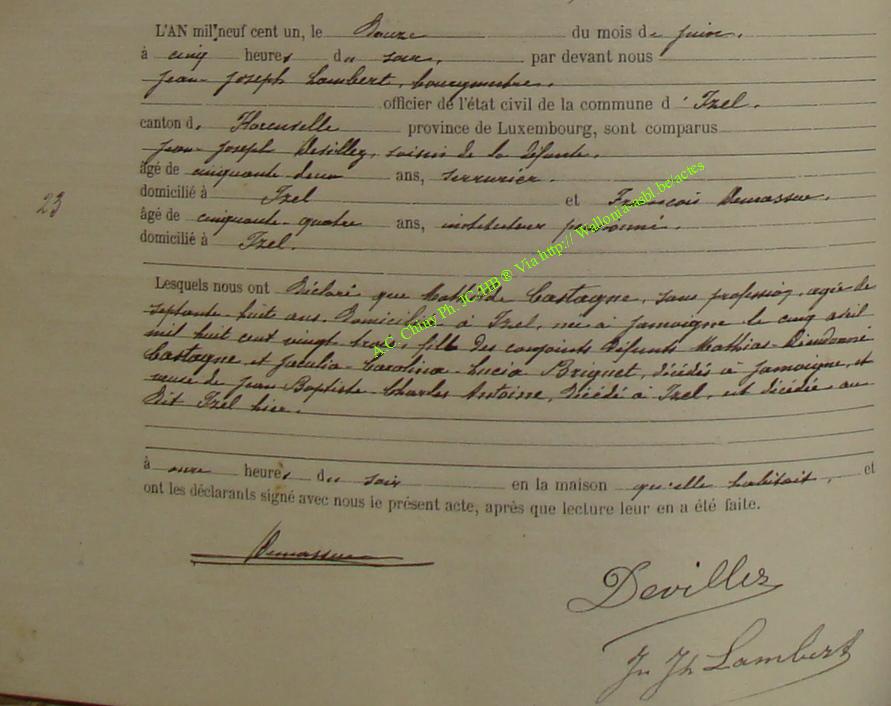 L'AN mil neuf cent un, le Douze du mois de juin.
à cinq heures du soir, par devant nous
Jean-Joseph Lambert, bourgmestre,
officier de l'état civil de la commune d'Izel.
canton de Florenville province de Luxembourg, sont comparus
Jean-Joseph Devillez, voisin de la défunte,
âgé de cinquante deux ans, serrurier.
domicilié à Izel et François Demasure.
âgé de cinquante quatre ans, instituteur pensionné.
23
domicilié à Izel.
Lesquels nous ont Déclaré que Mathilde Castagne, sans profession, agée de
septante huit ans, Domiciliée à Izel, née à Jamoigne le cinq avril
mil huit cent vingt trois, fille des conjoints Défunts Mathias-Dieudonné
Castagne et Carolina-Lucia Briquet, Décédés à Jamoigne, et
veuve de Jean-Baptiste-Charles Antoine, Décédé à Izel, est décédée au
Dit Izel hier.
à onze heures du soir en la maison qu'elle habitait, et
ont les déclarants signé avec nous le présent acte, après que lecture leur en a été faite.
A.C. Chiny Ph. JC.HB® Via http://Wallonia-asbl.be/actes
Devillez
Jn Jh Lambert